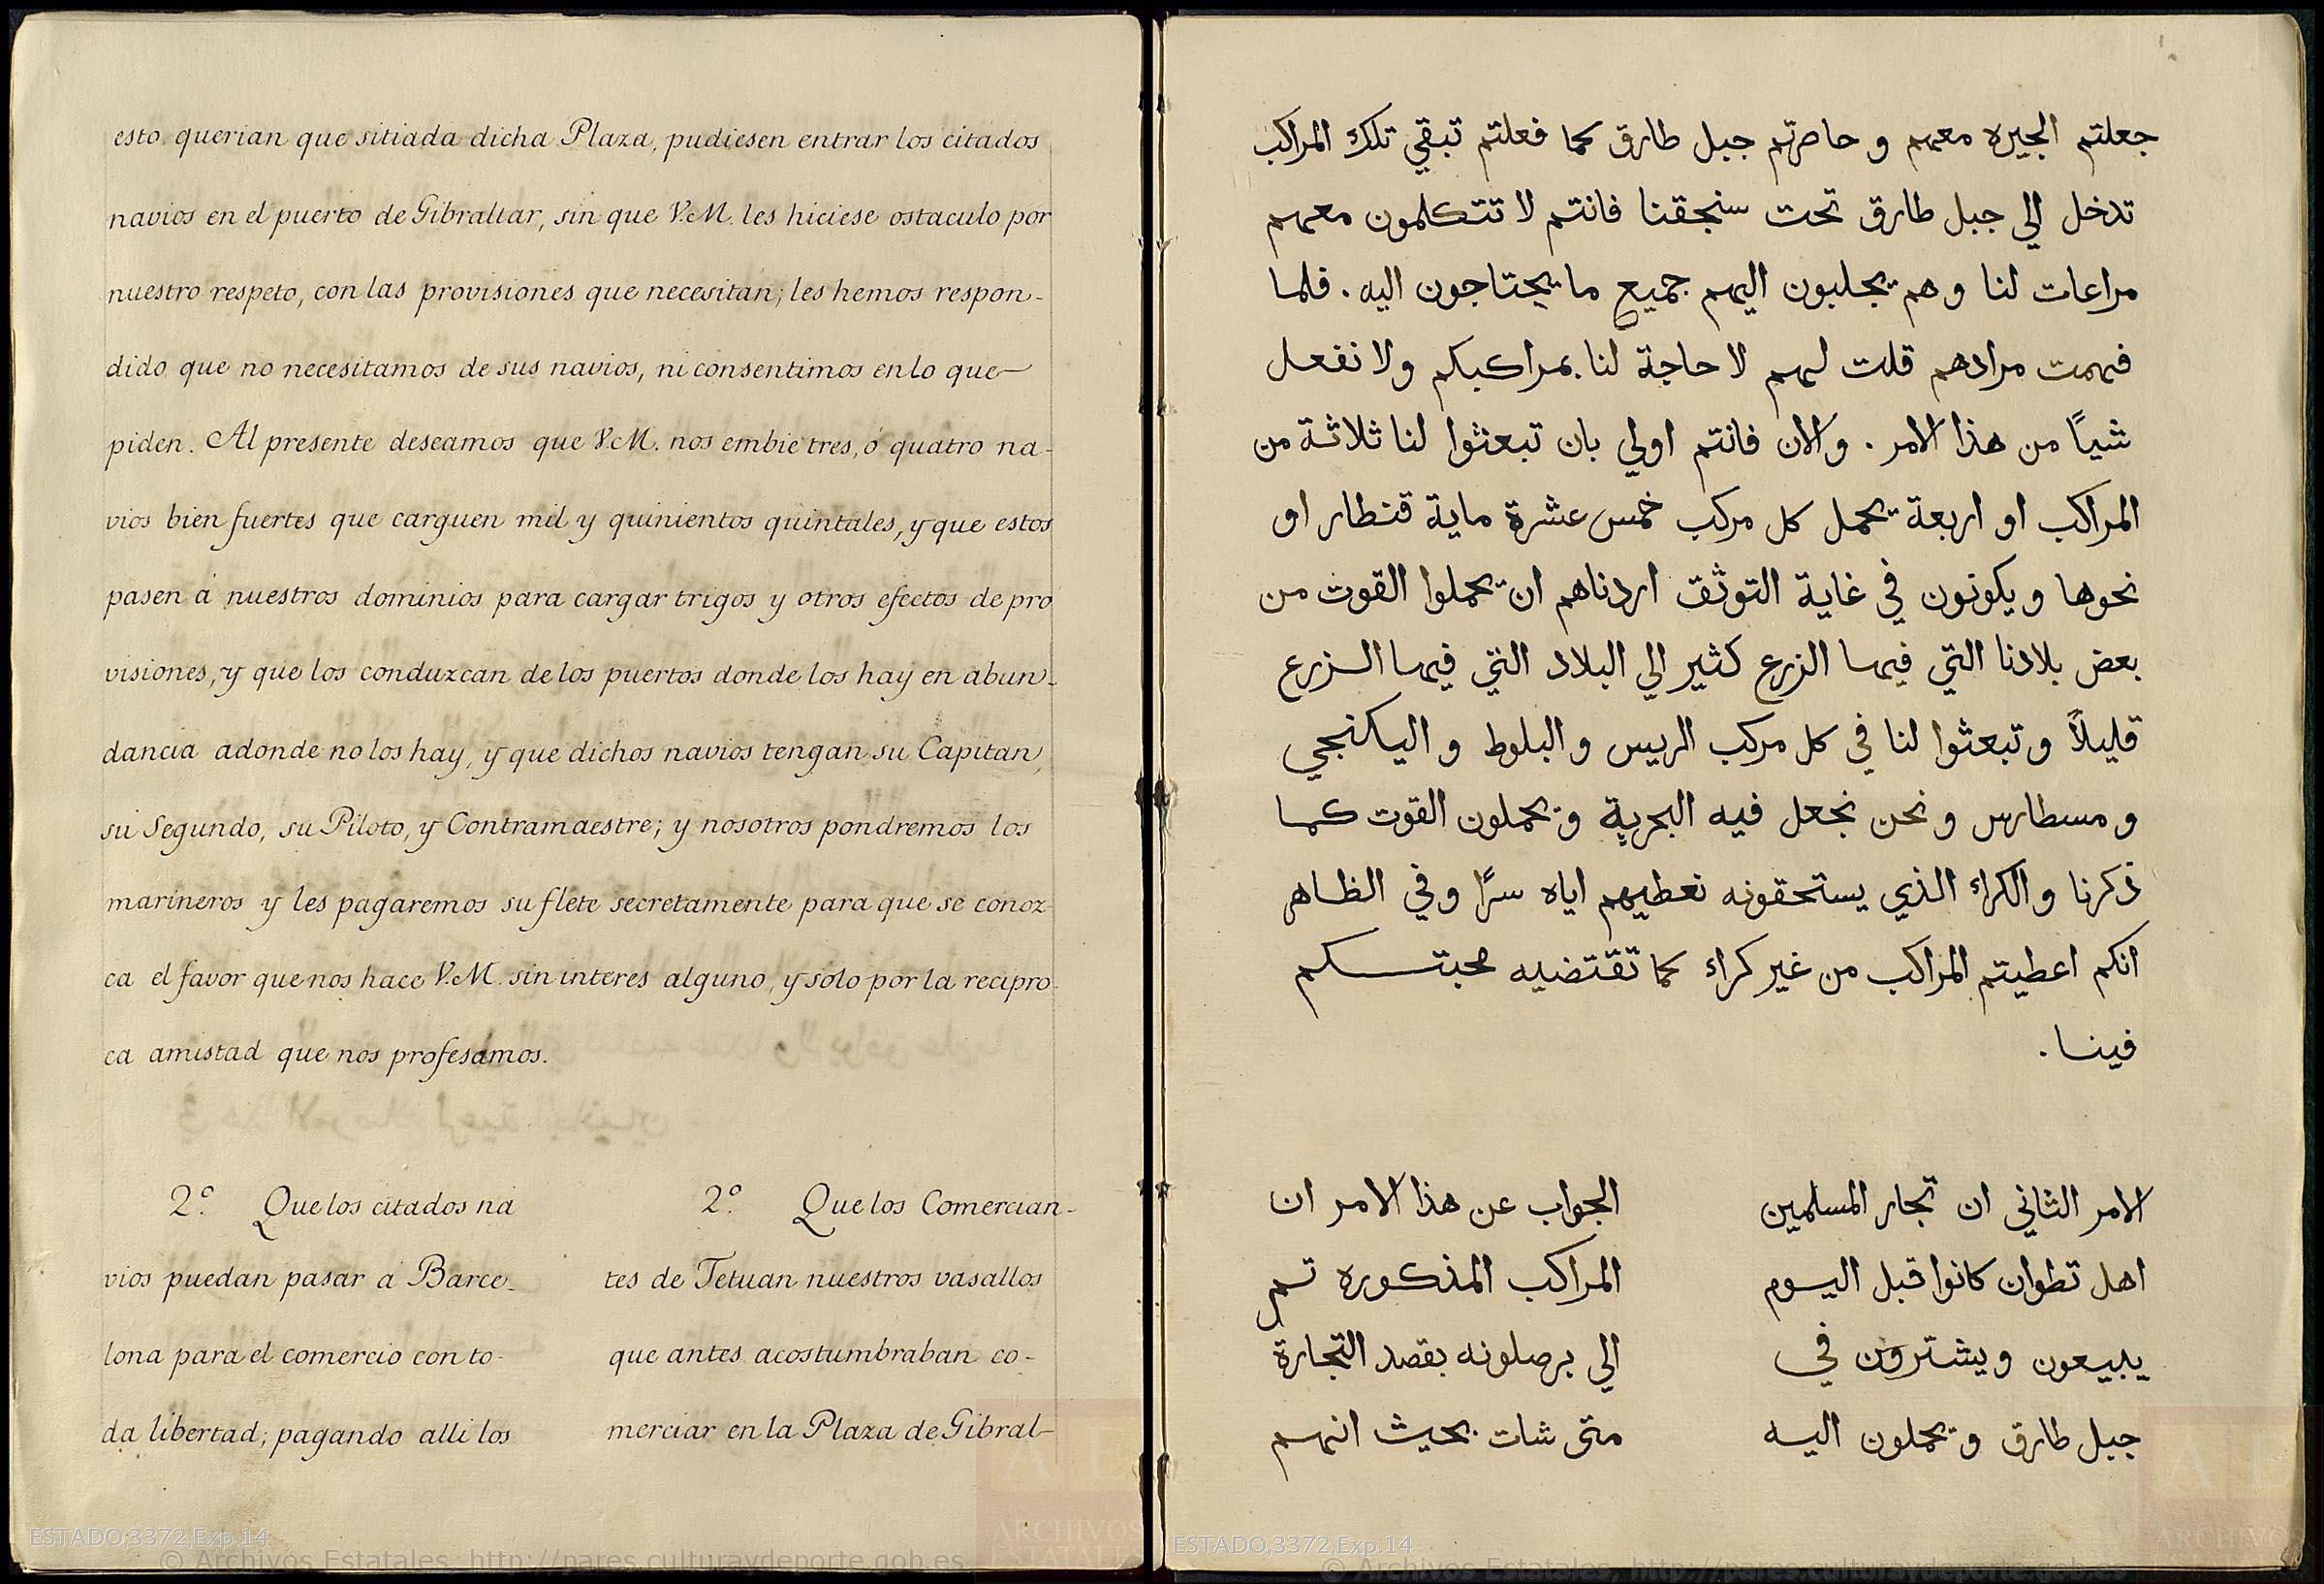 esto querian que sitiada dicha Plaza, pudiesen entrar los citados
navios en el puerto de Gibraltar, sin que V.M. les hiciese ostaculo por
nuestro respeto, con las provisiones que necesitan; les hemos respon-
dido que no necesitamos de sus navios, ni consentimos en lo que
piden. Al presente deseamos que V.M. nos embie tres, ó quatro na-
vios bien fuertes que carguen mil y quinientos quintales, y que estos
pasen á nuestros dominios para cargar trigos y otros efectos de pro
visiones, y que los conduzcan de los puertos donde los hay en abun-
dancia adonde no los hay, y que dichos navios tengan su Capitan,
su Segundo, su Piloto, y Contramaestre; y nosotros pondremos los
marineros y les pagaremos su flete secretamente para que se conoz-
ca el favor que nos hace V.M. sin interes alguno, y solo por la recipro-
ca amistad que nos profesamos.
2.º Que los citados na
vios puedan pasar á Barce-
lona para el comercio con to-
da libertad; pagando alli los
2.º Que los Comercian-
tes de Tetuan nuestros vasallos
que antes acostumbraban co-
merciar en la Plaza de Gibral-
جعلتم الجيره معهم و حاصرتم جبل طارق كما فعلتم تبقي تلك المراكب
تدخل الي جبل طارق تحت سنجقنا فانتم لا تتكلمون معهم
مراعات لنا وهم يجلبون اليهم جميع ما يحتاجون اليه . فلما
فهمت مرادهم قلت لهم لا حاجة لنا بمراكبكم ولا نفعل
شياً من هذا الامر . والان فانتم اولي بان تبعثوا لنا ثلاثة من
المراكب او اربعة يحمل كل مركب خمس عشرة ماية قنطار او
نحوها ويكونون في غاية التوثق اردناهم ان يحملوا القوت من
بعض بلادنا التي فيها الزرع كثير الي البلاد التي فيها الزرع
قليلاً و تبعثوا لنا في كل مركب الريس والبلوط و اليكنجي
و مسطارس و نحن نجعل فيه البحرية و يحملون القوت كما
ذكرنا والكراء الذي يستحقونه نعطيهم اياه سرًا وفي الظاهر
انكم اعطيتم المراكب من غير كراء كما تقتضيه محبتكم
فينا .
الامر الثاني ان تجار المسلمين
اهل تطوان كانوا قبل اليوم
يبيعون ويشترون في
جبل طارق و يحملون اليه
الجواب عن هذا الامر ان
المراكب المذكوره تم
الي برصلونه بقصد التجارة
متى شات بحيث انهم
ESTADO,3372,Exp.14
© Archivos Estatales, http://pares.culturaydeporte.gob.es
ESTADO,3372,Exp.14
© Archivos Estatales, http://pares.culturaydeporte.gob.es